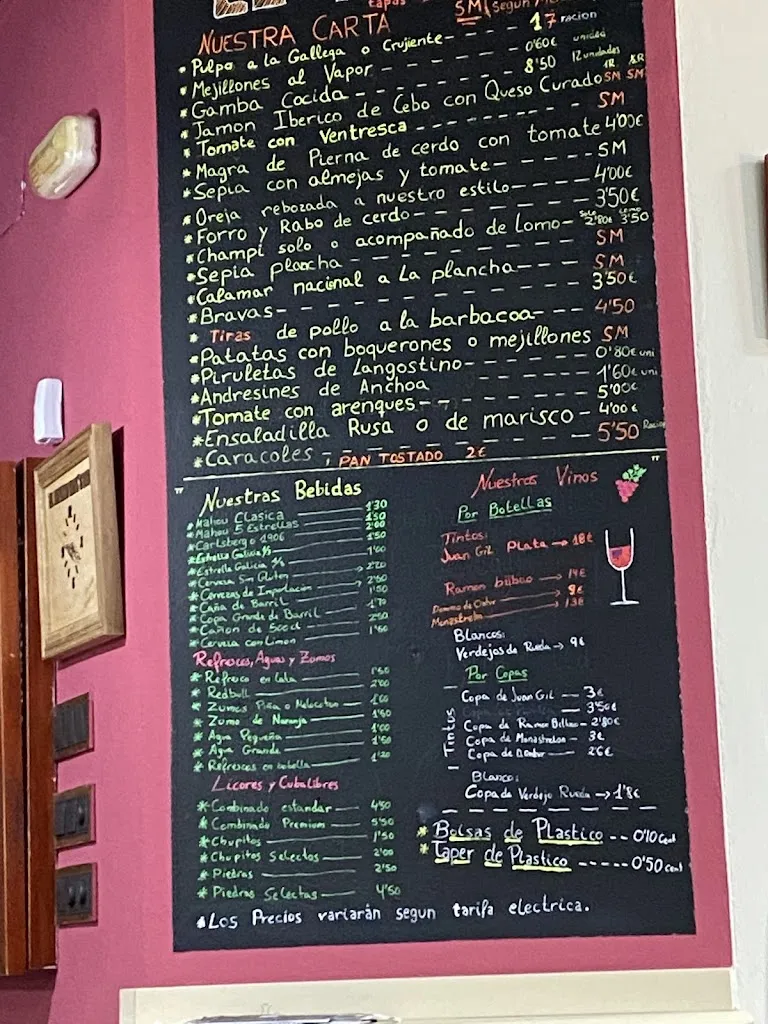 tapas SM (Segun
NUESTRA CARTA
* Pulpo a la Gallega o Crujiente - - - 17 racion
* Mejillones al Vapor - - - - - 0'60€ unidad
* Gamba Cocida - - - - - - 8'50 12 unidades
* Jamon Iberico de Cebo con Queso Curado SM SM
* Tomate con Ventresca - - - - - - - - SM
* Magra de Pierna de cerdo con tomate 4'00€
* Sepia con almejas y tomate - - - - - SM
* Oreja rebozada a nuestro estilo - - - - 4'00€
* Forro y Rabo de cerdo - - - - - - - 3'50€
* Champi solo o acompañado de lomo - solo 2'80€ lomo 3'50
* Sepia plancha - - - - - - - - - SM
* Calamar nacional a La plancha - - - SM
* Bravas - - - - - - - - - - - 3'50€
* Tiras de pollo a la barbacoa - - - 4'50
* Patatas con boquerones o mejillones SM
* Piruletas de Langostino - - - - - 0'80€ uni
* Andresines de Anchoa - - - - - 1'60€ uni
* Tomate con arenques - - - - - - 5'00€
* Ensaladilla Rusa o de marisco - 4'00€
* Caracoles - - - - - - - 5'50 Racion
; PAN TOSTADO 2€
" Nuestras Bebidas
* Mahou Clasica 1'30
* Mahou 5 Estrellas 1'50
* Carlsberg o 1906 2'00
* Estrella Galicia 1/5 1'50
* Estrella Galicia 1/3 1'00
* Cerveza Sin Gluten
* Cervezas de Importación
* Caña de Barril 1'50
* Copa Grande de Barril 1'70
* Cañon de 50 cl 2'50
* Cerveza con Limon 1'60
Refrescos, Aguas y Zumos
* Refresco en Lata 1'50
* Redbull 2'00
* Zumos Piña o Melocoton
* Zumo de Naranja 1'80
* Agua Pequeña 1'00
* Agua Grande 1'50
* Refrescos en botella 1'20
Licores y Cubalibres
* Combinado estandar 4'50
* Combinado Premium 5'50
* Chupitos 1'50
* Chupitos Selectos 2'00
* Piedras 2'50
* Piedras Selectas 4'50
Nuestros Vinos "
Por Botellas
Tintos:
Juan Gil Plata → 18€
Ramon bilbao → 14€
9€
Monastrell → 13€
Blancos:
Verdejos de Rueda → 9€
Por Copas
Tintos
Copa de Juan Gil — 3€
— 3'50€
Copa de Ramon Bilbao - 2'80€
Copa de Monastrell — 3€
Copa de — 2'6€
Blanco:
Copa de Verdejo Rueda → 1'8€
* Bolsas de Plastico - - 0'10 Cent
* Taper de Plastico - - - - - 0'50 Cent
* Los Precios variarán segun tarifa electrica.